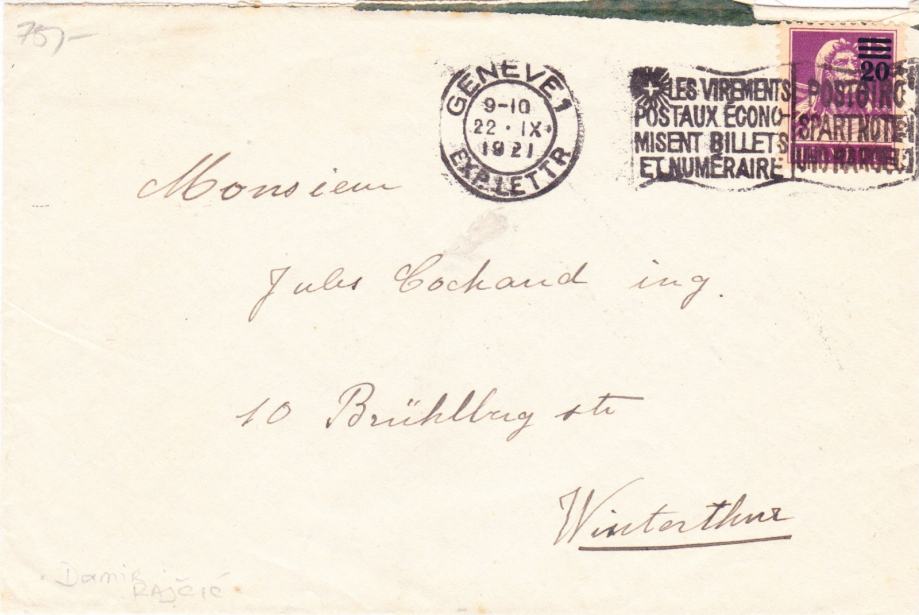 75,-
GENÈVE 1
9-10
22 · IX ·
1921
EXP. LETTR
LES VIREMENTS
POSTAUX ÉCONO-
MISENT BILLETS
ET NUMÉRAIRE
POSTGIRO
SPART NOTEN
UND
20
Monsieur
Jules Cochand ing.
10 Brühlberg str
Winterthur
Damir
RAJČIĆ